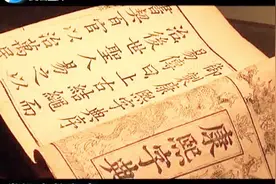 御製康熙字典序
易傳曰上古結繩而
治後世聖人易之以
書契百官以治萬
康熙字典